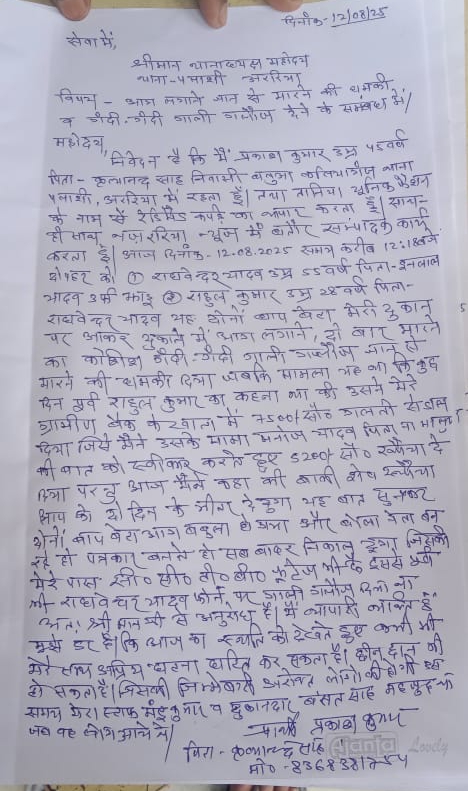 दिनांक-12/08/25
सेवा में,
श्रीमान थानाध्यक्ष महोदय
थाना-पलासी अररिया
विषय - आग लगाने जान से मारने की धमकी
व गंदी-गंदी गाली गलौज देने के सम्बन्ध में।
महोदय,
निवेदन है कि मैं प्रकाश कुमार उम्र 45 वर्ष
पिता- कृत्यानन्द साह निवासी बलुआ कलियागंज थाना
पलासी, अररिया में रहता हूँ। तथा तानिया युनिक फैशन
के नाम से रेडिमेड कपड़े का व्यापार करता हूँ। साथ-
ही साथ नजरिया न्यूज में बतौर सम्पादक कार्य
करता हूँ। आज दिनांक-12.08.2025 समय करीब 12:18 बजे
दोपहर को ① राघवेन्द्र यादव उम्र 55 वर्ष पिता-
यादव उर्फ ② राहुल कुमार उम्र 28 वर्ष पिता-
राघवेन्द्र यादव यह दोनों बाप बेटा मेरी दुकान
पर आकर दुकान में आग लगाने, दो बार मारने
का कोशिश गंदी-गंदी गाली गलौज जान से
मारने की धमकी दिया जबकि मामला यह था कि कुछ
दिन पूर्व राहुल कुमार का कहना था की उसने मेरे
ग्रामीण बैंक के खाता में 7500/सौ० गलती से डाल
दिया जिसे मैंने उसके मामा मनोज यादव पिता
की बात को स्वीकार करते हुए 5200/सौ० रूपैया दे
दिया परन्तु आज मैंने कहा की बाकी शेष रूपैया
आप को दो दिन के भीतर दे दुंगा यह बात सुनकर
दोनों बाप बेटा आग बबुला हो गया और बोला नेता बन
रहे हो पत्रकार बनते हो सब बाहर निकाल दुंगा जिसकी
मेरे पास सी० सी० टी० वी० फुटेज भी है इससे पूर्व
भी राघवेन्द्र यादव फोन पर गाली गलौज दिया था
अतः श्रीमान जी से अनुरोध है। मैं व्यापारी व्यक्ति हूँ
मुझे डर है। कि आज का स्थिति को देखते हुए कभी भी
मेरे साथ अप्रिय घटना घटित कर सकता है।
हो सकता है। जिसकी जिम्मेवारी उपरोक्त लोगों की होगी उस
समय मेरा स्टाफ कुमार व दुकानदार बसंत साह मौजुद थे
जब वह लोग आये थे।
प्रार्थी प्रकाश कुमार
पिता - कृत्यानन्द साह
मो० - 8368381754
Ajanta Lovely